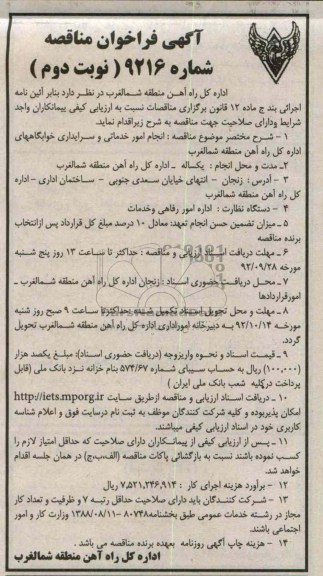 آگهی فراخوان مناقصه
شماره ۹۲۱۶ ( نوبت دوم )
اداره کل راه آهن منطقه شمالغرب در نظر دارد بنابر آئین نامه
اجرائی بند ج ماده ۱۲ قانون برگزاری مناقصات نسبت به ارزیابی کیفی پیمانکاران واجد
شرایط ودارای صلاحیت جهت مناقصه به شرح زیراقدام نماید.
۱ - شرح مختصر موضوع مناقصه : انجام امور خدماتی و سرایداری خوابگاههای
اداره کل راه آهن منطقه شمالغرب
۲ـ مدت و محل انجام : یکساله ـ اداره کل راه آهن منطقه شمالغرب
۳ - آدرس : زنجان - انتهای خیابان سعدی جنوبی - ساختمان اداری - اداره
کل راه آهن منطقه شمالغرب
۴ - دستگاه نظارت : اداره امور رفاهی وخدمات
۵ ـ میزان تضمین حسن انجام تعهد: معادل ۱۰ درصد مبلغ کل قرارداد پس ازانتخاب
برنده مناقصه
۶ ـ مهلت دریافت اسناد ارزیابی و مناقصه : حداکثر تا ساعت ۱۳ روز پنج شنبه
مورخه ۹۲/۰۹/۲۸
۷ ـ محل دریافت حضوری اسناد : زنجان اداره کل راه آهن منطقه شمالغرب ـ
امورقراردادها
۸ ـ مهلت و محل تحویل اسناد تکمیل شده: حداکثرتا ساعت ۹ صبح روز شنبه
مورخه ۹۲/۱۰/۱۴ به دبیرخانه اموراداری اداره کل راه آهن منطقه شمالغرب تحویل
گردد.
۹ ـ قیمت اسناد و نحوه واریزوجه (دریافت حضوری اسناد): مبلغ یکصد هزار
(۱۰۰,۰۰۰) ریال به حساب سیبای شماره ۵۷۴/۶۷ بنام خزانه نزد بانک ملی (قابل
پرداخت درکلیه شعب بانک ملی ایران )
۱۰ ـ دریافت اسناد ارزیابی و مناقصه ازطریق سایت http://iets.mporg.ir
امکان پذیربوده و کلیه شرکت کنندگان موظف به ثبت نام درسایت فوق و اعلام شناسه
کاربری خود در اسناد ارزیابی کیفی میباشند.
۱۱ ـ پس از ارزیابی کیفی از پیمانکاران دارای صلاحیت که حداقل امتیاز لازم را
کسب نموده باشند نسبت به بازگشائی پاکات مناقصه (الف،ب،ج) در همان جلسه اقدام
خواهد شد.
۱۲ - برآورد هزینه اجرای کار : ۷,۵۲۱,۲۴۶,۹۱۴ ریال
۱۳ - شرکت کنندگان باید دارای صلاحیت حداقل رتبه ۷ و ظرفیت و تعداد کار
مجاز در رشته خدمات عمومی طبق بخشنامه۸۰۷۴۸ -۱۳۸۸/۰۸/۱۱ وزارت کار و امور
اجتماعی باشند.
۱۴ - هزینه چاپ آگهی روزنامه بعهده برنده مناقصه می باشد .
اداره کل راه آهن منطقه شمالغرب